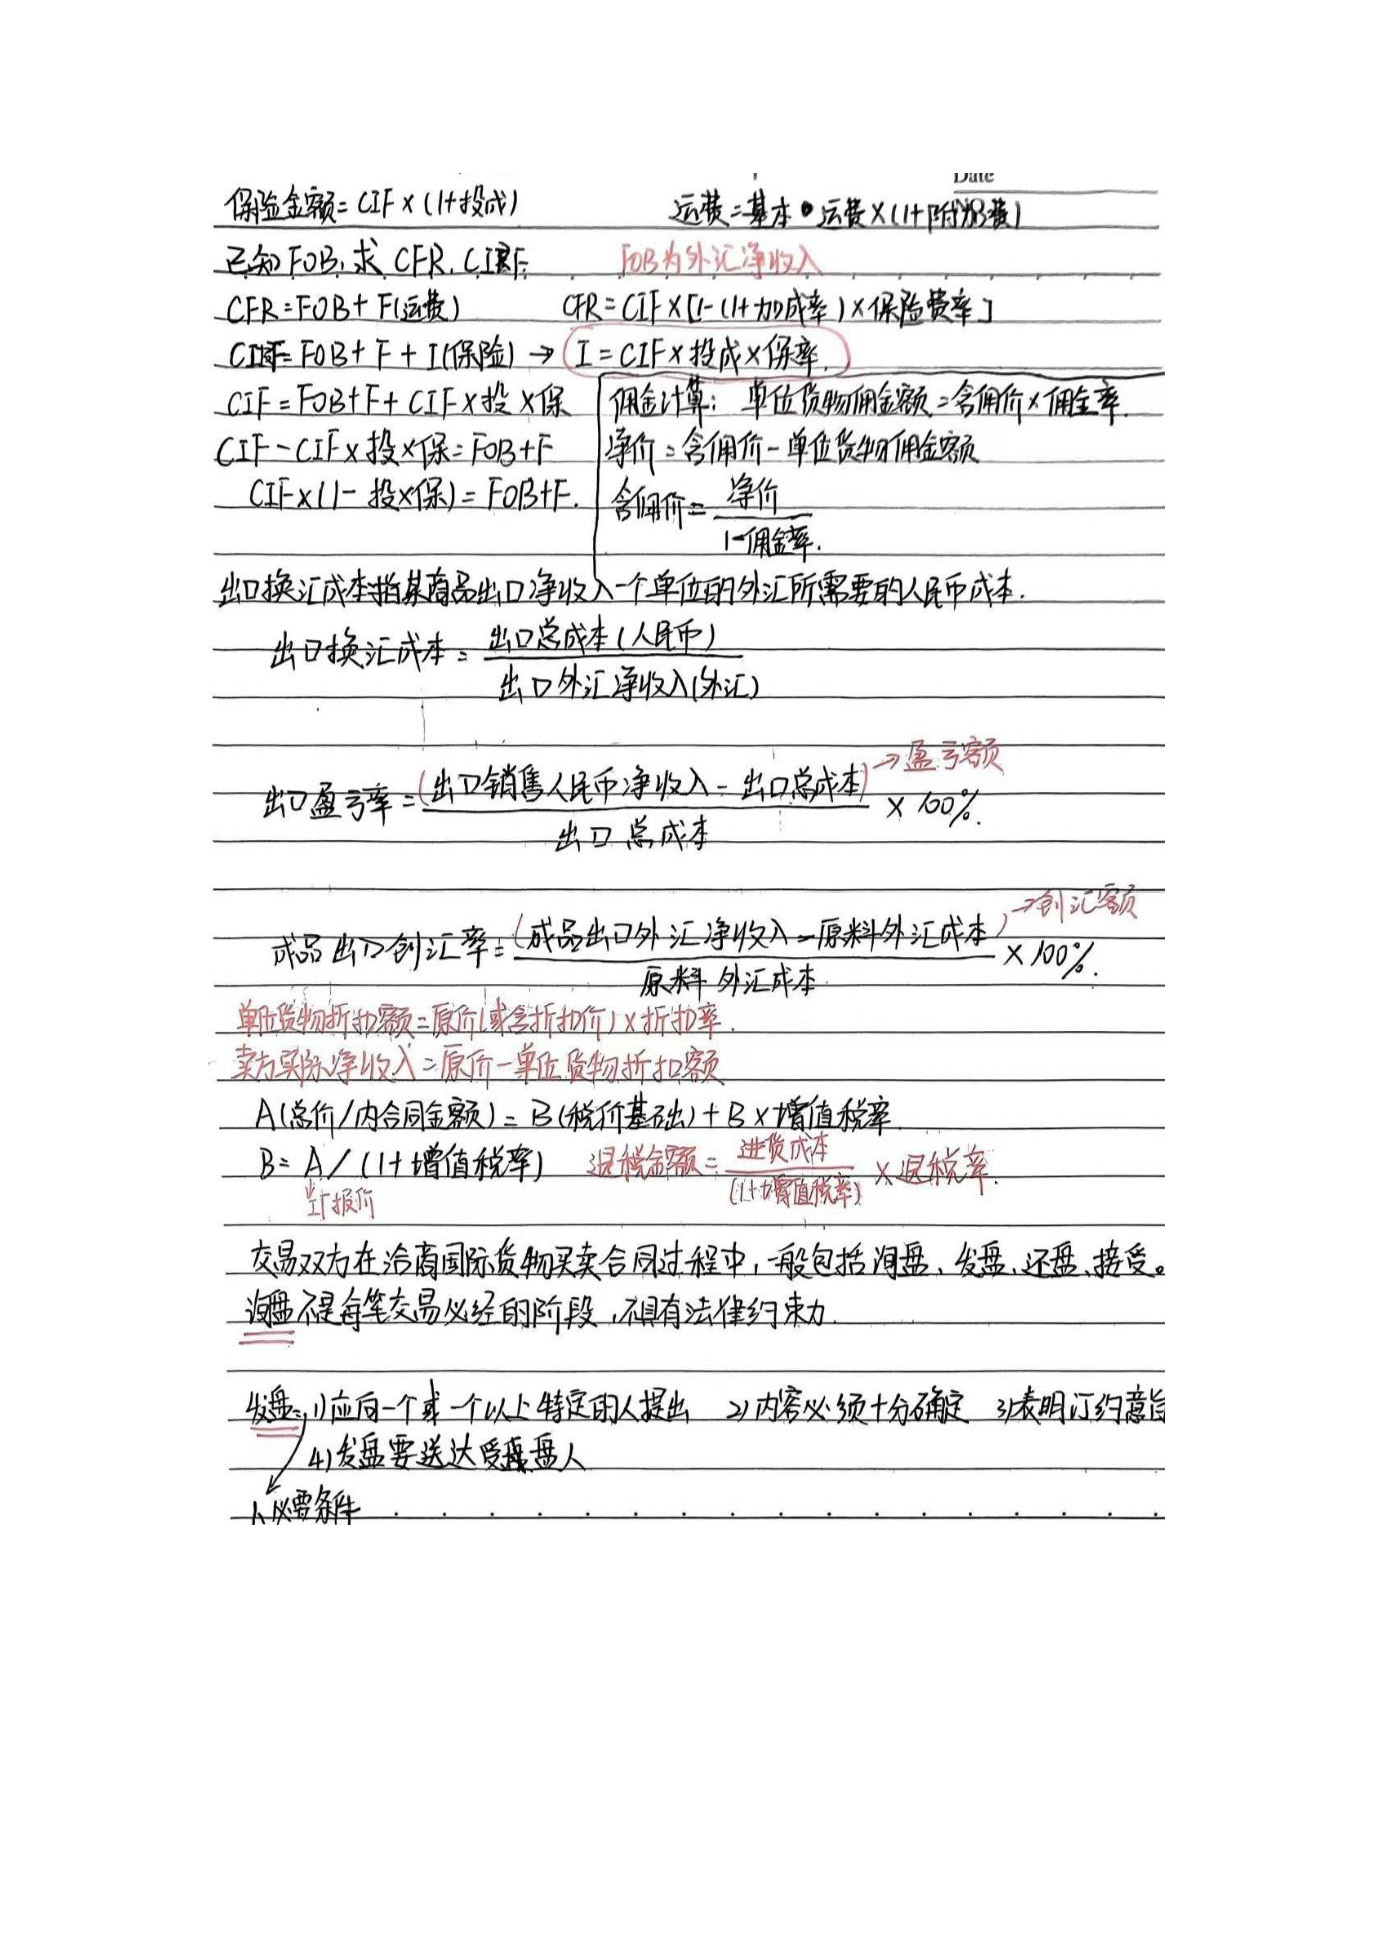 Date
保险金额=CIF×(1+投成)
运费=基本运费×(1+附加费)
已知FOB,求CFR.CIF.
FOB为外汇净收入
CFR=FOB+F(运费)
CFR=CIF×[1-(1+加成率)×保险费率]
CIF=FOB+F+I(保险)→ I=CIF×投成×保率.
CIF=FOB+F+CIF×投×保
CIF-CIF×投×保=FOB+F
CIF×(1-投×保)=FOB+F.
佣金计算: 单位货物佣金额=含佣价×佣金率.
净价=含佣价-单位货物佣金额
含佣价=净价/1-佣金率.
出口换汇成本指某商品出口净收入一个单位的外汇所需要的人民币成本.
出口换汇成本=出口总成本(人民币)/出口外汇净收入(外汇)
→盈亏额
出口盈亏率=(出口销售人民币净收入-出口总成本)/出口总成本×100%.
→创汇额
成品出口创汇率=(成品出口外汇净收入-原料外汇成本)/原料外汇成本×100%.
单位货物折扣额=原价(或含折扣价)×折扣率.
卖方实际净收入=原价-单位货物折扣额
A(总价/内合同金额)=B(税价基础)+B×增值税率
B=A/(1+增值税率)
退税金额=进货成本/(1+增值税率)×退税率.
报价
交易双方在洽商国际货物买卖合同过程中,一般包括询盘、发盘、还盘、接受。
询盘不是每笔交易必经的阶段,不具有法律约束力.
发盘:1)应向一个或一个以上特定的人提出 2)内容必须十分确定 3)表明订约意旨
4)发盘要送达受盘人
必要条件